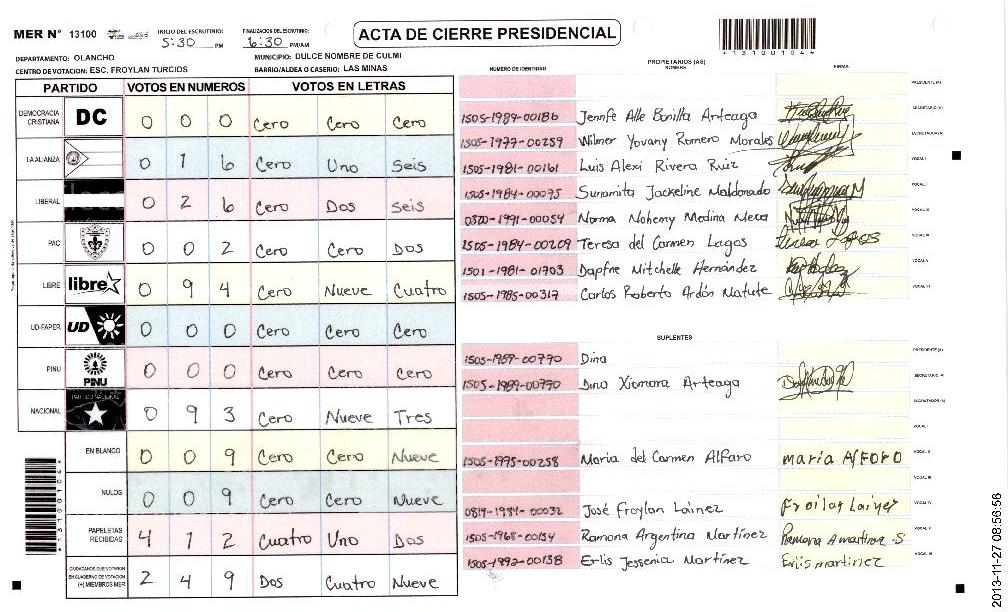 MER N° 13100 INICIO DEL ESCRUTINIO: 5:30 PM FINALIZACION DEL ESCRUTINIO: 6:30 PM/AM
ACTA DE CIERRE PRESIDENCIAL
*13100104*
DEPARTAMENTO: OLANCHO MUNICIPIO: DULCE NOMBRE DE CULMI
CENTRO DE VOTACION: ESC. FROYLAN TURCIOS BARRIO/ALDEA O CASERIO: LAS MINAS
PARTIDO VOTOS EN NUMEROS VOTOS EN LETRAS
DEMOCRACIA CRISTIANA DC 0 0 0 Cero Cero Cero
LA ALIANZA 0 1 6 Cero Uno Seis
LIBERAL 0 2 6 Cero Dos Seis
PAC 0 0 2 Cero Cero Dos
LIBRE libre 0 9 4 Cero Nueve Cuatro
UD-FAPER UD 0 0 0 Cero Cero Cero
PINU PINU 0 0 0 Cero Cero Cero
NACIONAL PARTIDO NACIONAL 0 9 3 Cero Nueve Tres
EN BLANCO 0 0 9 Cero Cero Nueve
NULOS 0 0 9 Cero Cero Nueve
PAPELETAS RECIBIDAS 4 1 2 Cuatro Uno Dos
CIUDADANOS QUE VOTARON EN CUADERNO DE VOTACION (+) MIEMBROS MER 2 4 9 Dos Cuatro Nueve
*13100104*
NUMERO DE IDENTIDAD PROPIETARIOS (AS) NOMBRE FIRMA
PRESIDENTE (A)
1505-1984-00186 Jennfe Alle Bonilla Arteaga SECRETARIO (A)
1505-1977-00259 Wilmer Yovany Romero Morales ESCRUTADOR (A)
1505-1981-00161 Luis Alexi Rivera Ruiz VOCAL I
1505-1984-00095 Sunamita Jackeline Maldonado VOCAL II
0320-1991-00054 Norma Nohemy Medina Meza VOCAL III
1505-1984-00209 Teresa del Carmen Lagos VOCAL IV
1501-1981-01703 Dapfne Mitchelle Hernández VOCAL V
1505-1985-00317 Carlos Roberto Ardón Matute VOCAL VI
SUPLENTES
1505-1989-00770 Dina PRESIDENTE (A)
1505-1989-00770 Dina Xiomara Arteaga SECRETARIO (A)
ESCRUTADOR (A)
VOCAL I
1505-1975-00258 Maria del Carmen Alfaro maria AlFORO VOCAL II
VOCAL III
0819-1984-00032 José Froylan Lainez Froilan Lainez VOCAL IV
1505-1968-00154 Ramona Argentina Martínez Ramona A martinez S VOCAL V
1505-1992-00138 Erlis Jessenia Martínez Erlis martinez VOCAL VI
2013-11-27 08:56:56